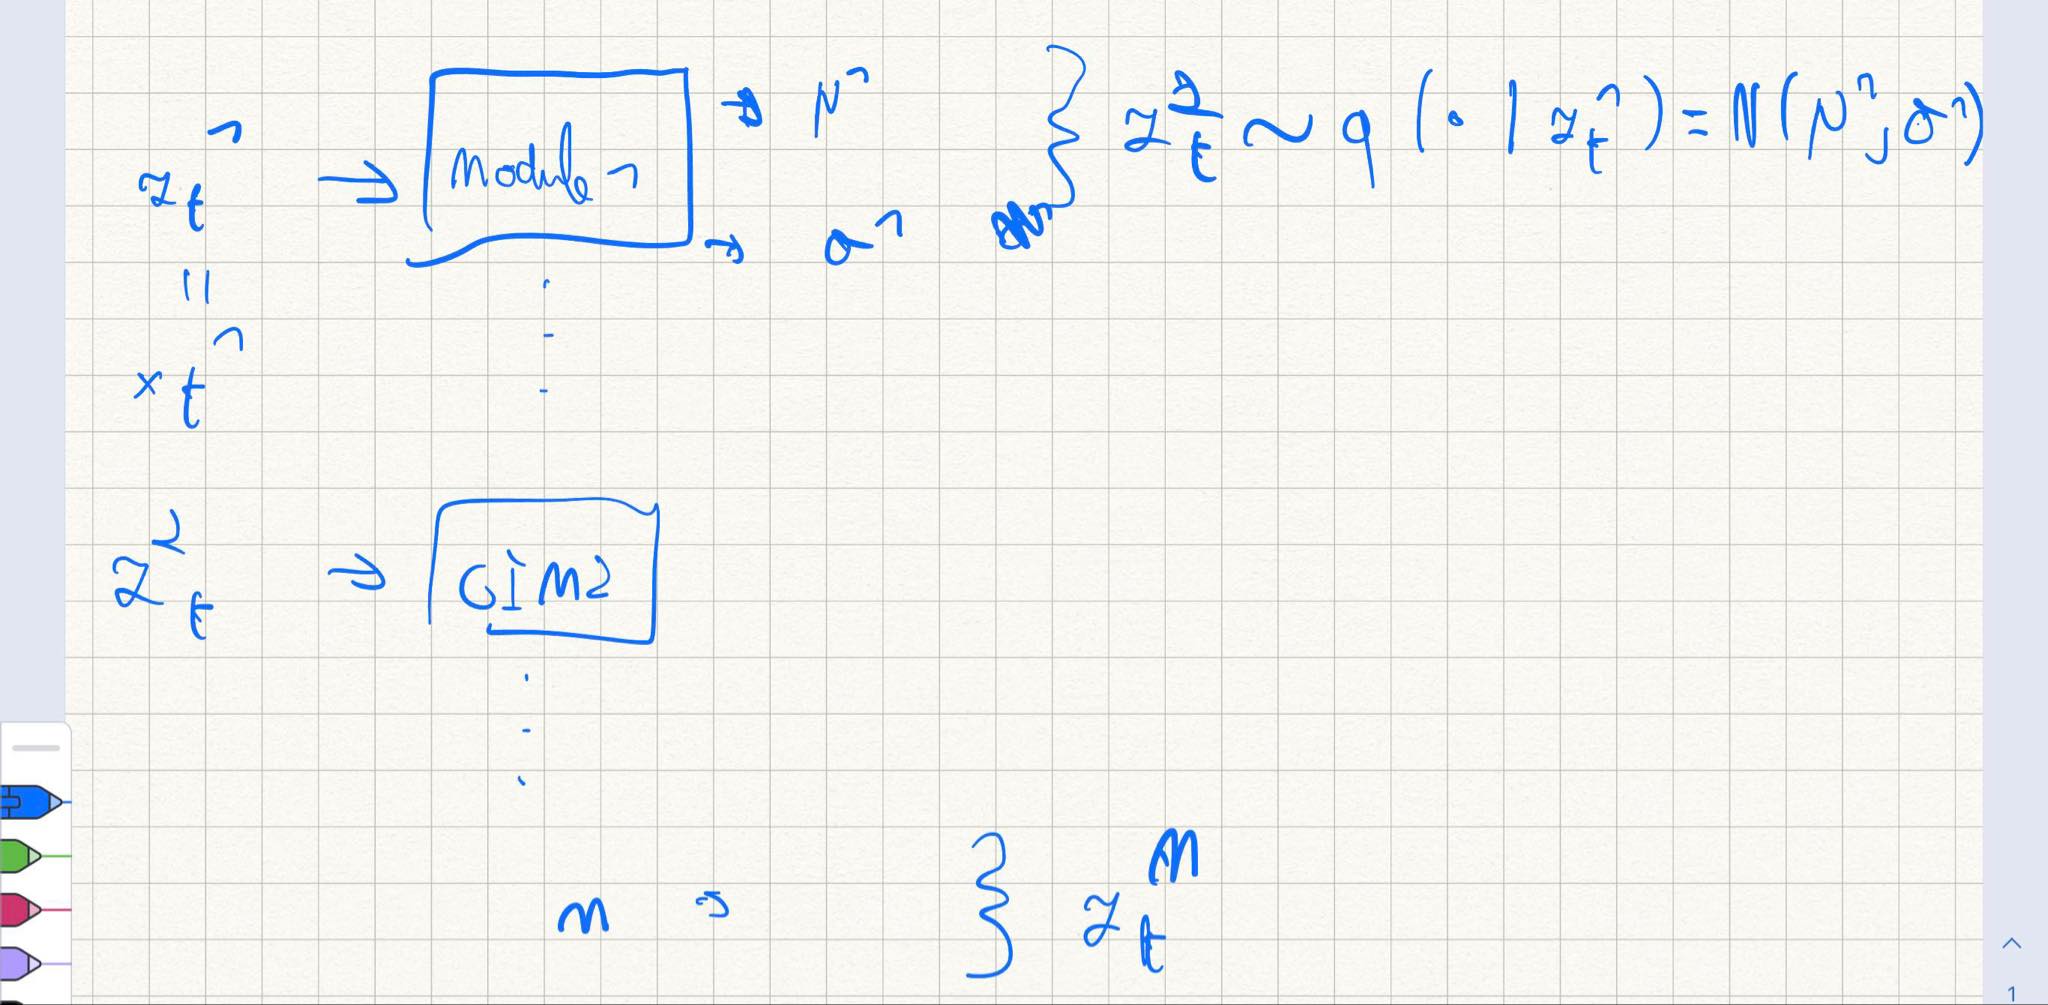 z_t^1 → Module 1 → μ^1 } z_t^2 ~ q(· | z_t^1) = N(μ^1, σ^1)
→ σ^1
=
x_t^1
z_t^2 → GIM2
m → } z_t^M
1